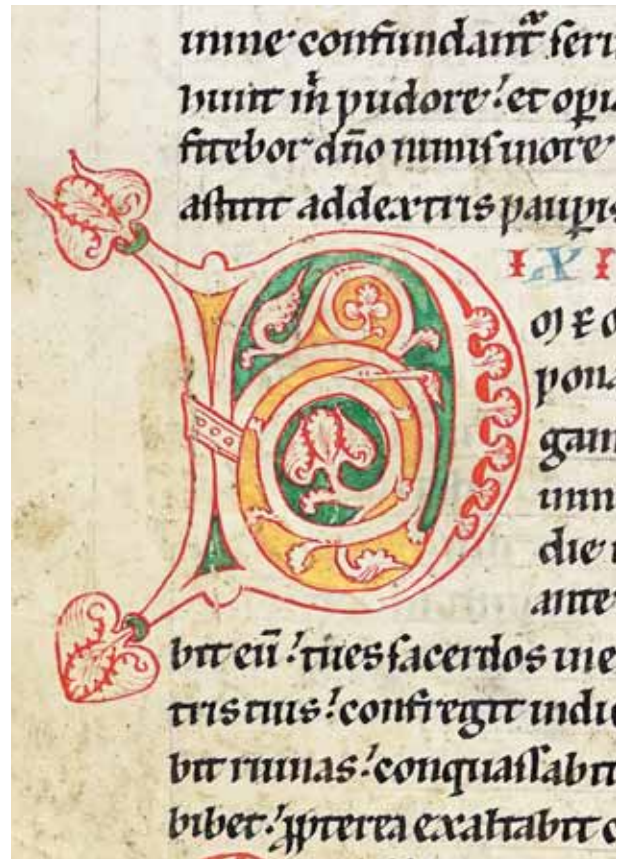 mine· confundant᷑
hunt m̄ pudore:̓ et op̲i
fitebor dño nimis in ore
astitit addextris paup̲is
D IXI
pona
gam
inim
die
ante
bit eū:̓ tu es sacerdos in e
tris tuis:̓ confregit in di
bit ruinas:̓ conquassabit
bibet:̓ ꝓpterea exaltabit c